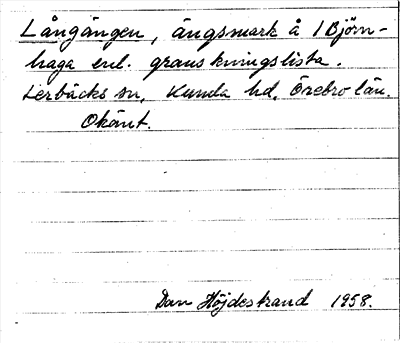 Långängen, ängsmark å 1 Björn-
haga enl. granskningslista.
Lerbäcks sn, Kumla hd, Örebro län.
Okänt.
Dan Höjdestrand 1958.